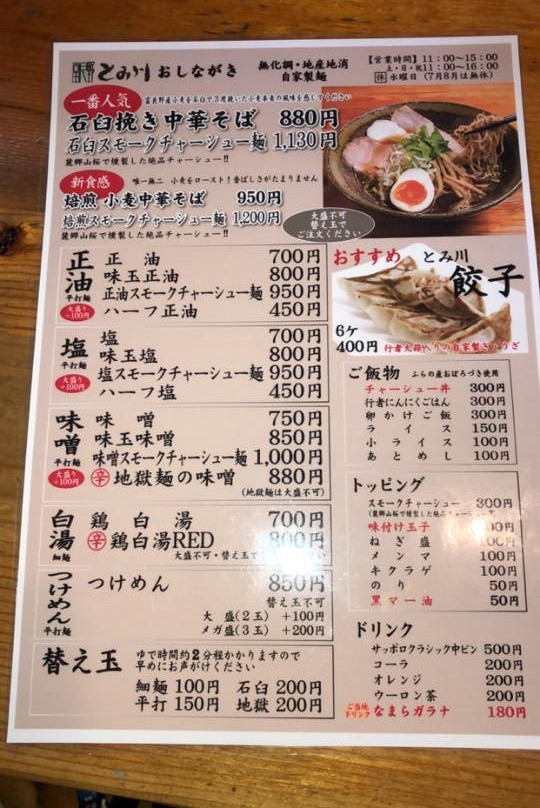 とみ川 おしながき
無化調・地産地消
自家製麺
【営業時間】11：00〜15：00
土・日・祝11：00〜16：00
休 水曜日（7月8月は無休）
一番人気
富良野産小麦を石臼で3度挽いた小麦本来の風味を感じてください
石臼挽き中華そば 880円
石臼スモークチャーシュー麺 1,130円
麓郷山桜で燻製した絶品チャーシュー!!
新食感
唯一無二 小麦をロースト！香ばしさがたまりません
焙煎 小麦中華そば 950円
焙煎スモークチャーシュー麺 1,200円
麓郷山桜で燻製した絶品チャーシュー!!
大盛不可
替え玉で
ご注文ください
正油
平打麺
大盛り
+100円
正油 700円
味玉正油 800円
正油スモークチャーシュー麺 950円
ハーフ正油 450円
塩
平打麺
大盛り
+100円
塩 700円
味玉塩 800円
塩スモークチャーシュー麺 950円
ハーフ塩 450円
味噌
平打麺
大盛り
+100円
味噌 750円
味玉味噌 850円
味噌スモークチャーシュー麺 1,000円
辛 地獄麺の味噌 880円
(地獄麺は大盛不可)
白湯
細麺
鶏白湯 700円
辛 鶏白湯RED 800円
大盛不可・替え玉で
つけめん
平打麺
つけめん 850円
替え玉不可
大盛(2玉) +100円
メガ盛(3玉) +200円
替え玉
ゆで時間約2分程かかりますので
早めにお声がけください
細麺 100円 石臼 200円
平打 150円 地獄 200円
おすすめ とみ川
餃子
6ケ
400円 行者大蒜入りの自家製ぎょうざ
ご飯物 ふらの産おぼろづき使用
チャーシュー丼 300円
行者にんにくごはん 300円
卵かけご飯 300円
ライス 150円
小ライス 100円
あとめし 100円
トッピング
スモークチャーシュー 300円
(麓郷山桜で燻製した絶品チャーシュー)
味付け玉子 00円
ねぎ盛 100円
メンマ 100円
キクラゲ 100円
のり 50円
黒マー油 50円
ドリンク
サッポロクラシック中ビン 500円
コーラ 200円
オレンジ 200円
ウーロン茶 200円
ご当地
ドリンク なまらガラナ 180円